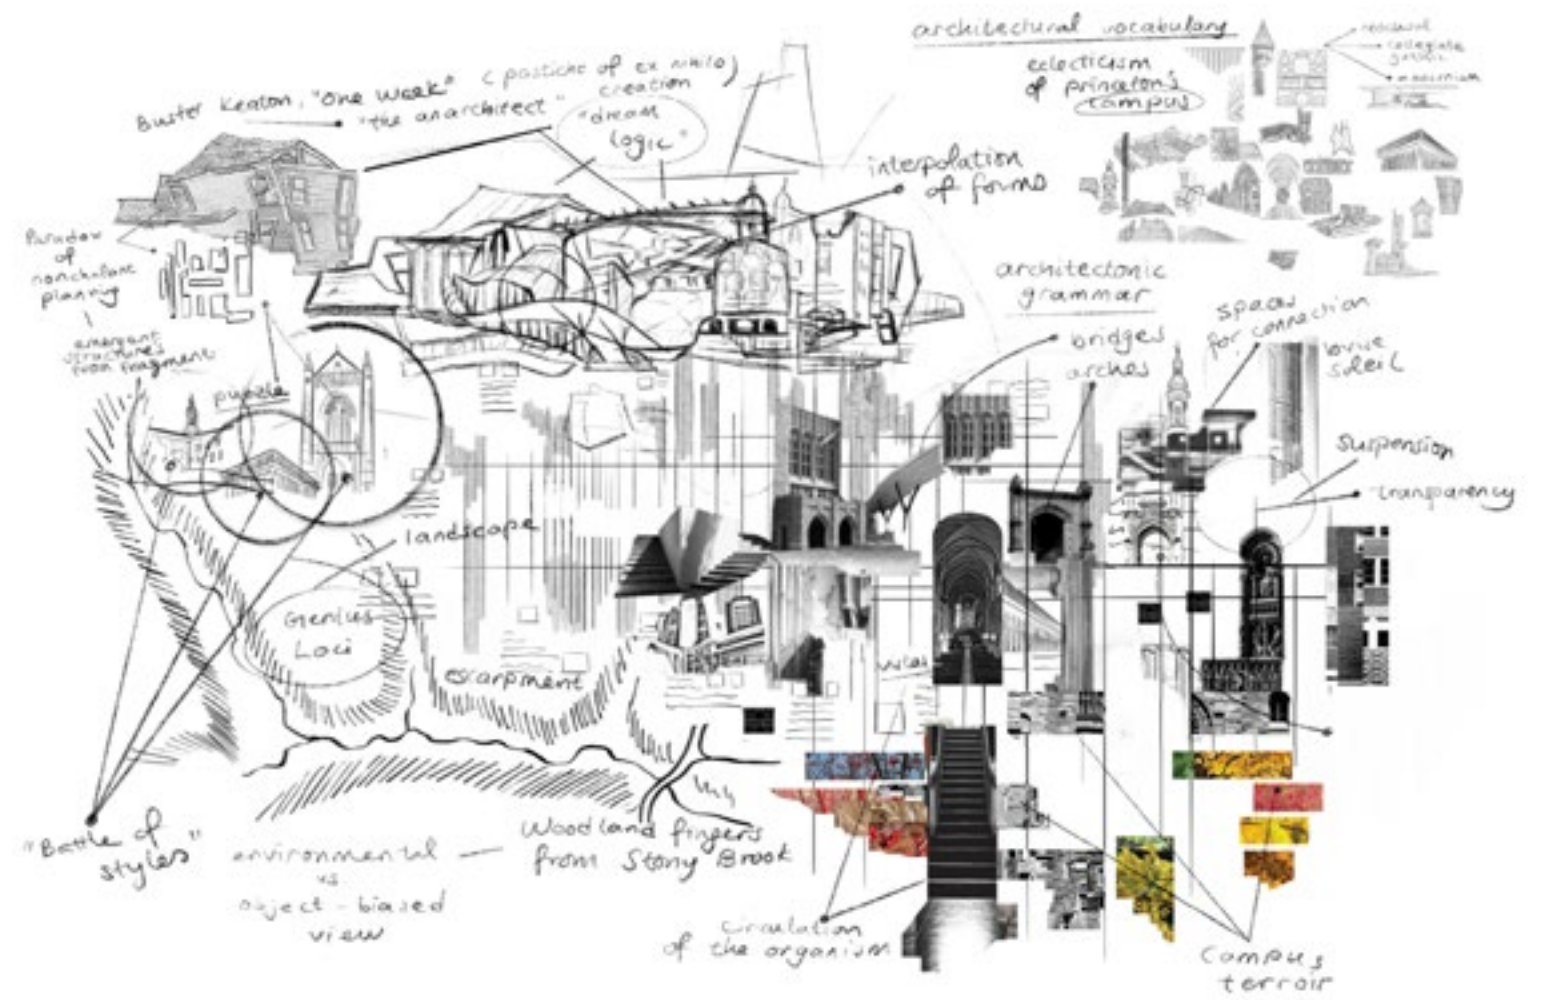 architectural vocabulary
eclecticism
of princeton's
campus
neoclassical
collegiate
gothic
modernism
Buster Keaton, "One Week" (pastiche of ex nihilo)
creation
"the anarchitect"
"dream
logic"
interpolation
of forms
Paradox
of
nonchalant
planning
emergent
structures
from fragment
puzzle
architectonic
grammar
bridges
arches
spaces
for connection
brise
soleil
suspension
transparency
landscape
Genius
Loci
escarpment
"Battle of
styles"
environmental
vs
object-biased
view
Woodland fingers
from Stony Brook
circulation
of the organism
campus
terroir